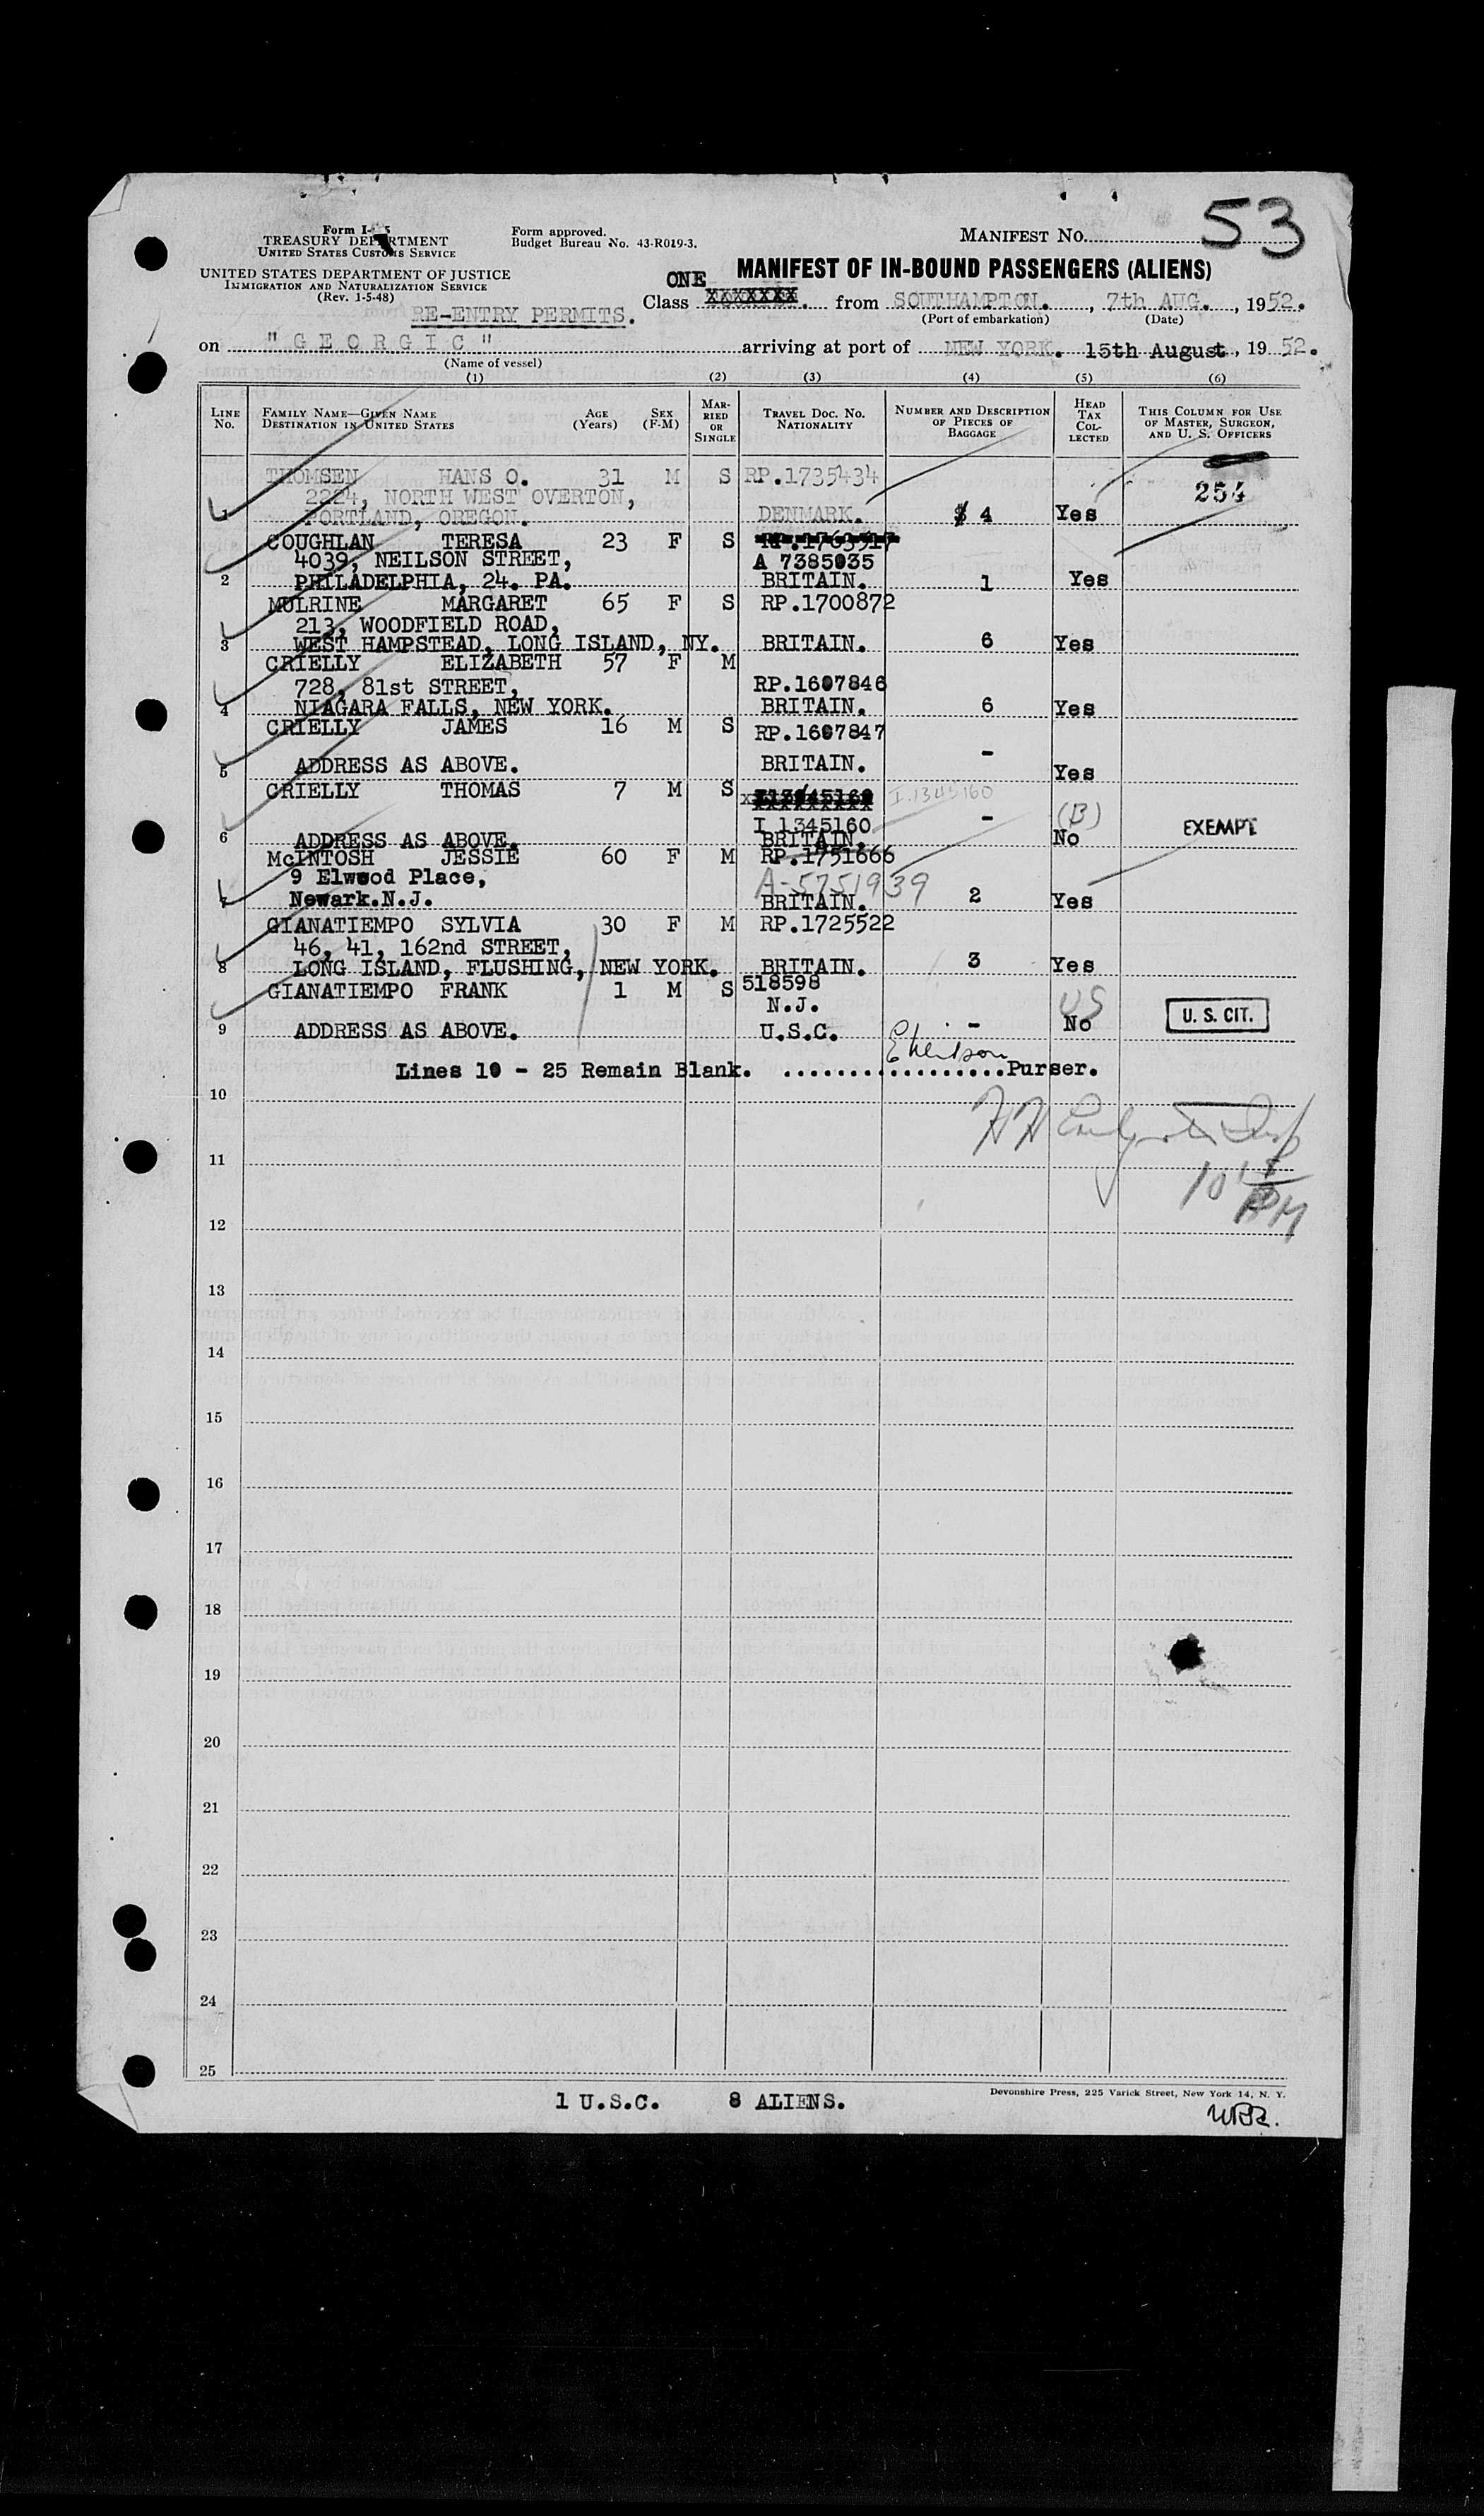 53
Form I-
TREASURY DEPARTMENT
UNITED STATES CUSTOMS SERVICE
Form approved.
Budget Bureau No. 43-R019-3.
MANIFEST No.
UNITED STATES DEPARTMENT OF JUSTICE
IMMIGRATION AND NATURALIZATION SERVICE
(Rev. 1-5-48)
MANIFEST OF IN-BOUND PASSENGERS (ALIENS)
RE-ENTRY PERMITS.
ONE
Class XXXXXXX. from SOUTHAMPTON., 7th AUG., 1952.
(Port of embarkation) (Date)
on "GEORGIC" arriving at port of NEW YORK. 15th August, 1952.
(Name of vessel)
(1) (2) (3) (4) (5) (6)
LINE No. FAMILY NAME—GIVEN NAME DESTINATION IN UNITED STATES AGE (Years) SEX (F-M) MARRIED OR SINGLE TRAVEL DOC. NO. NATIONALITY NUMBER AND DESCRIPTION OF PIECES OF BAGGAGE HEAD TAX COLLECTED THIS COLUMN FOR USE OF MASTER, SURGEON, AND U. S. OFFICERS
THOMSEN HANS O. 31 M S RP.1735434
2224, NORTH WEST OVERTON, 254
1 PORTLAND, OREGON. DENMARK. 4 Yes
COUGHLAN TERESA 23 F S RP.1763517
4039, NEILSON STREET, A 7385035
2 PHILADELPHIA, 24. PA. BRITAIN. 1 Yes
MULRINE MARGARET 65 F S RP.1700872
213, WOODFIELD ROAD,
3 WEST HAMPSTEAD, LONG ISLAND, NY. BRITAIN. 6 Yes
CRIELLY ELIZABETH 57 F M
728, 81st STREET, RP.1607846
4 NIAGARA FALLS, NEW YORK. BRITAIN. 6 Yes
CRIELLY JAMES 16 M S RP.1607847
5 ADDRESS AS ABOVE. BRITAIN. - Yes
CRIELLY THOMAS 7 M S I.1345160
I 1345160 - (B)
6 ADDRESS AS ABOVE. BRITAIN. No EXEMPT
McINTOSH JESSIE 60 F M RP.1751666
9 Elwood Place, A-5751939
7 Newark.N.J. BRITAIN. 2 Yes
GIANATIEMPO SYLVIA 30 F M RP.1725522
46, 41, 162nd STREET,
8 LONG ISLAND, FLUSHING, NEW YORK. BRITAIN. 3 Yes
GIANATIEMPO FRANK 1 M S 518598
N.J. US
9 ADDRESS AS ABOVE. U.S.C. - No U. S. CIT.
Lines 10 - 25 Remain Blank. .................Purser.
10
11
12
13
14
15
16
17
18
19
20
21
22
23
24
25
1 U.S.C. 8 ALIENS.
Devonshire Press, 225 Varick Street, New York 14, N. Y.